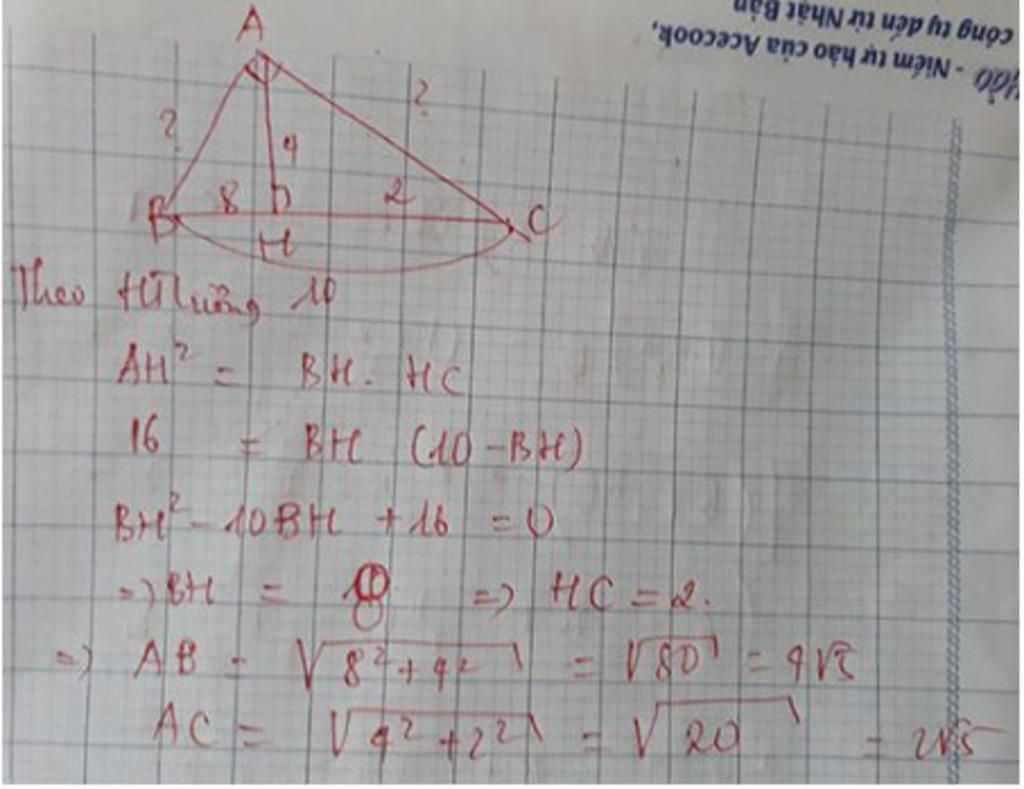 công ty đến từ Nhật Bản
- Niềm tự hào của Acecook,
A
?
?
4
B
8
2
C
H
10
Theo HTLượng
AH² = BH. HC
16 = BH (10 - BH)
BH² - 10BH + 16 = 0
=> BH = 8 => HC = 2.
=> AB = √8² + 4² = √80 = 4√5
AC = √4² + 2² = √20 = 2√5